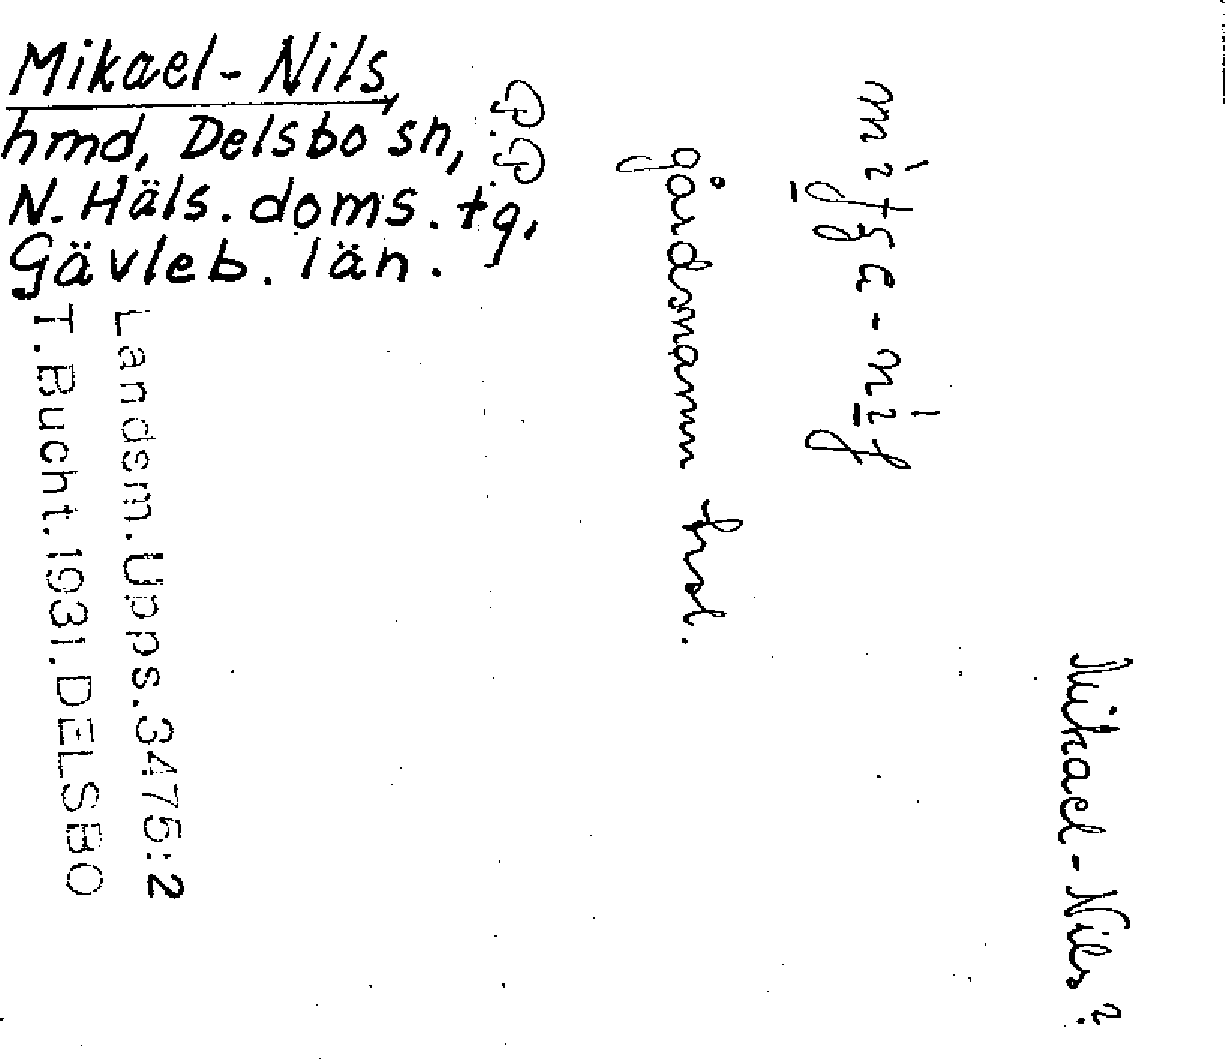 Mikael-Nils,
hmd, Delsbo sn,
N. Häls. doms. tg,
Gävleb. län.
Mikael-Nils?
gårdsnamn
P.P
Landsm. Upps. 3475:2
T. Bucht. 1931. DELSBO